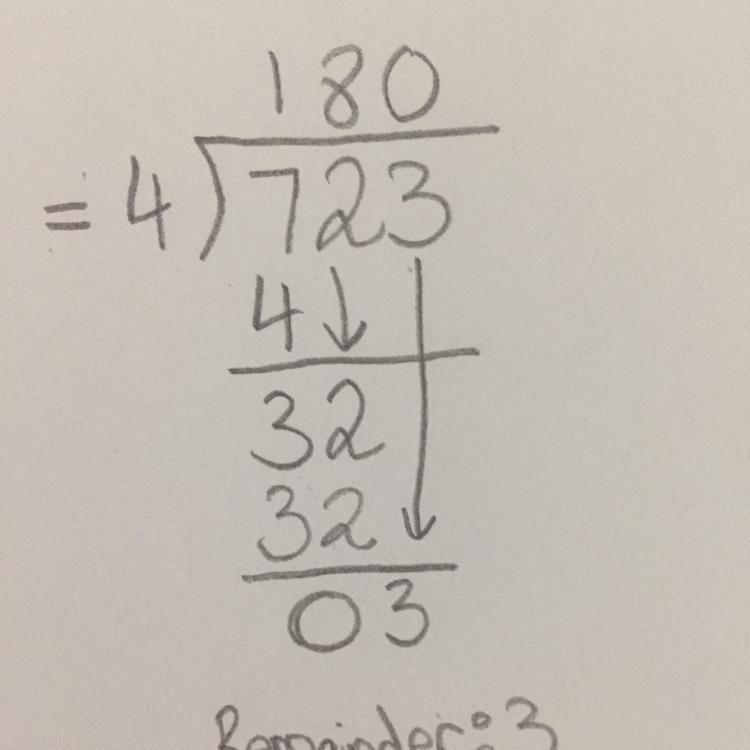 180
= 4)723
4
32
32
03
Remainder: 3